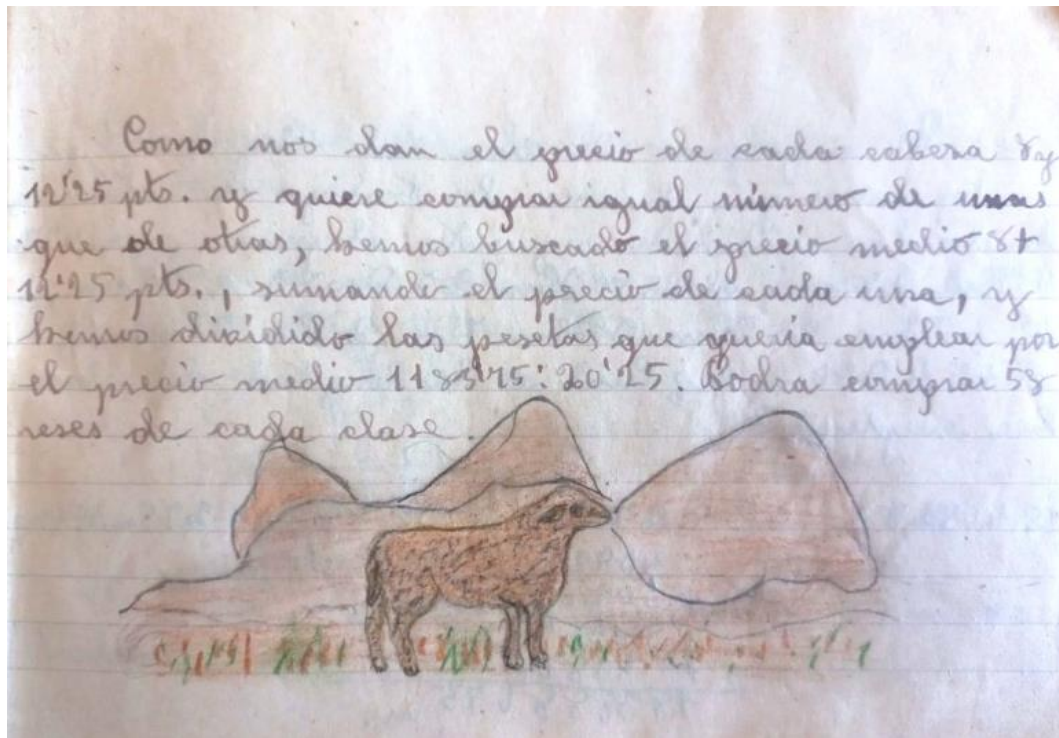 Como nos dan el precio de cada cabeza 8 y
12'25 pts. y quiere comprar igual número de unas
que de otras, hemos buscado el precio medio 8+
12'25 pts., sumando el precio de cada una, y
hemos dividido las pesetas que quería emplear por
el precio medio 1183'75:20'25. Podra comprar 58
reses de cada clase.